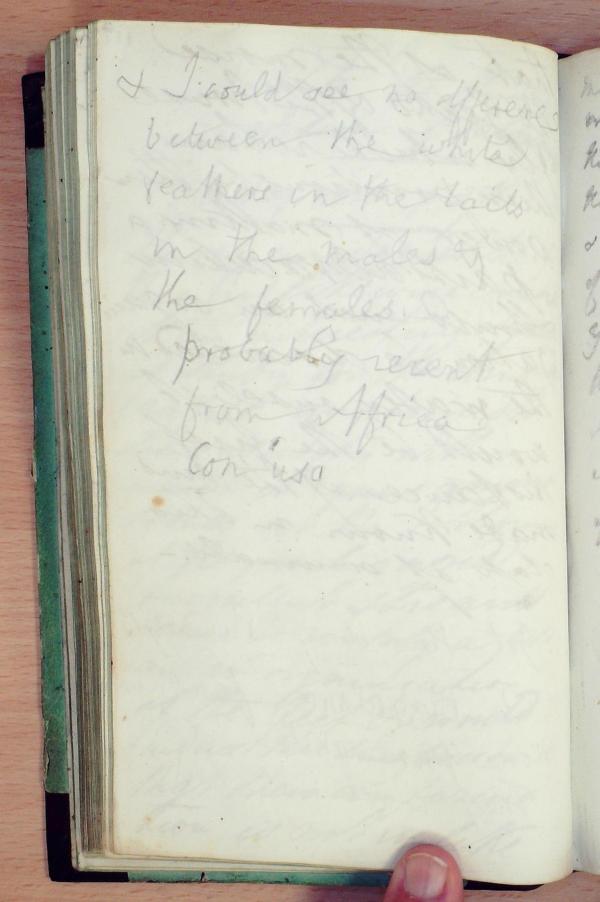 & I could see no difference
between the white
feathers in the tails
in the males &
the females.
probably recent
from Africa
Con uso